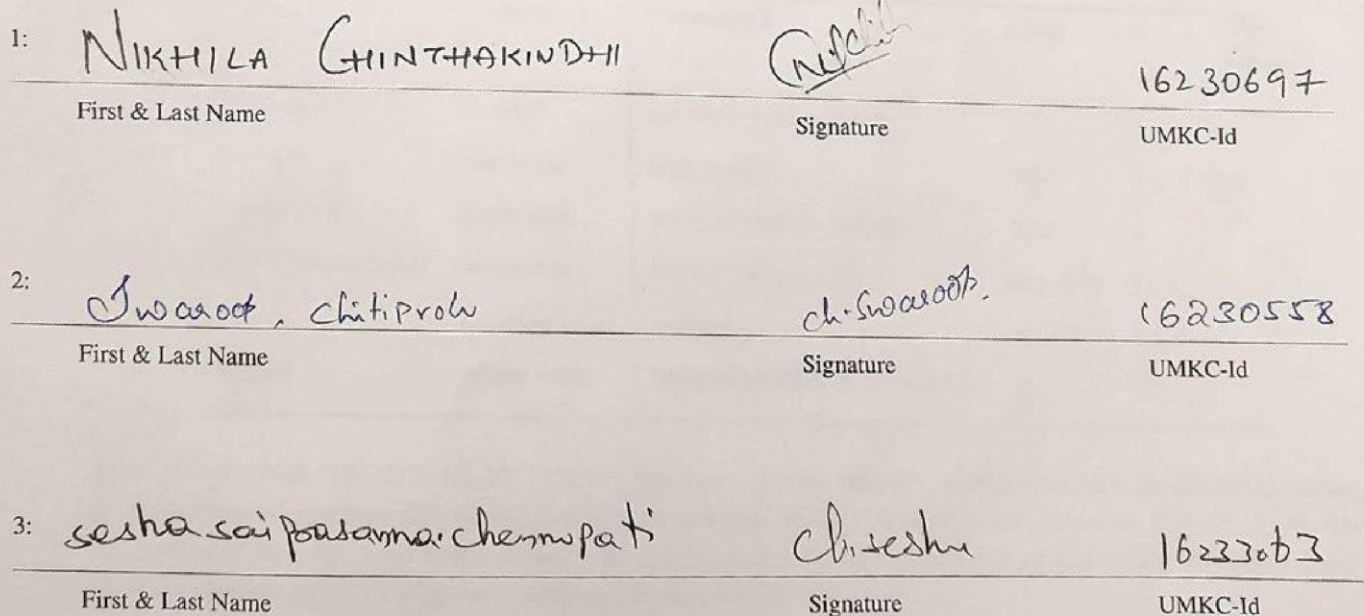 1: NIKHILA CHINTHAKINDHI 16230697
First & Last Name Signature UMKC-Id
2: Swaroop. chitiprolu ch.Swaroop. 16230558
First & Last Name Signature UMKC-Id
3: sesha sai prasanna.chennupati Ch.seshu 16233063
First & Last Name Signature UMKC-Id